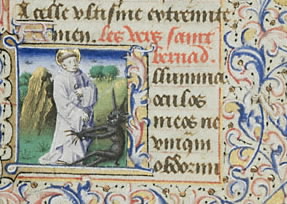 celle ultisme extremite
Amen. les vers saint
bernad.
Illumina
oculos
meos ne
unqm
obdormi